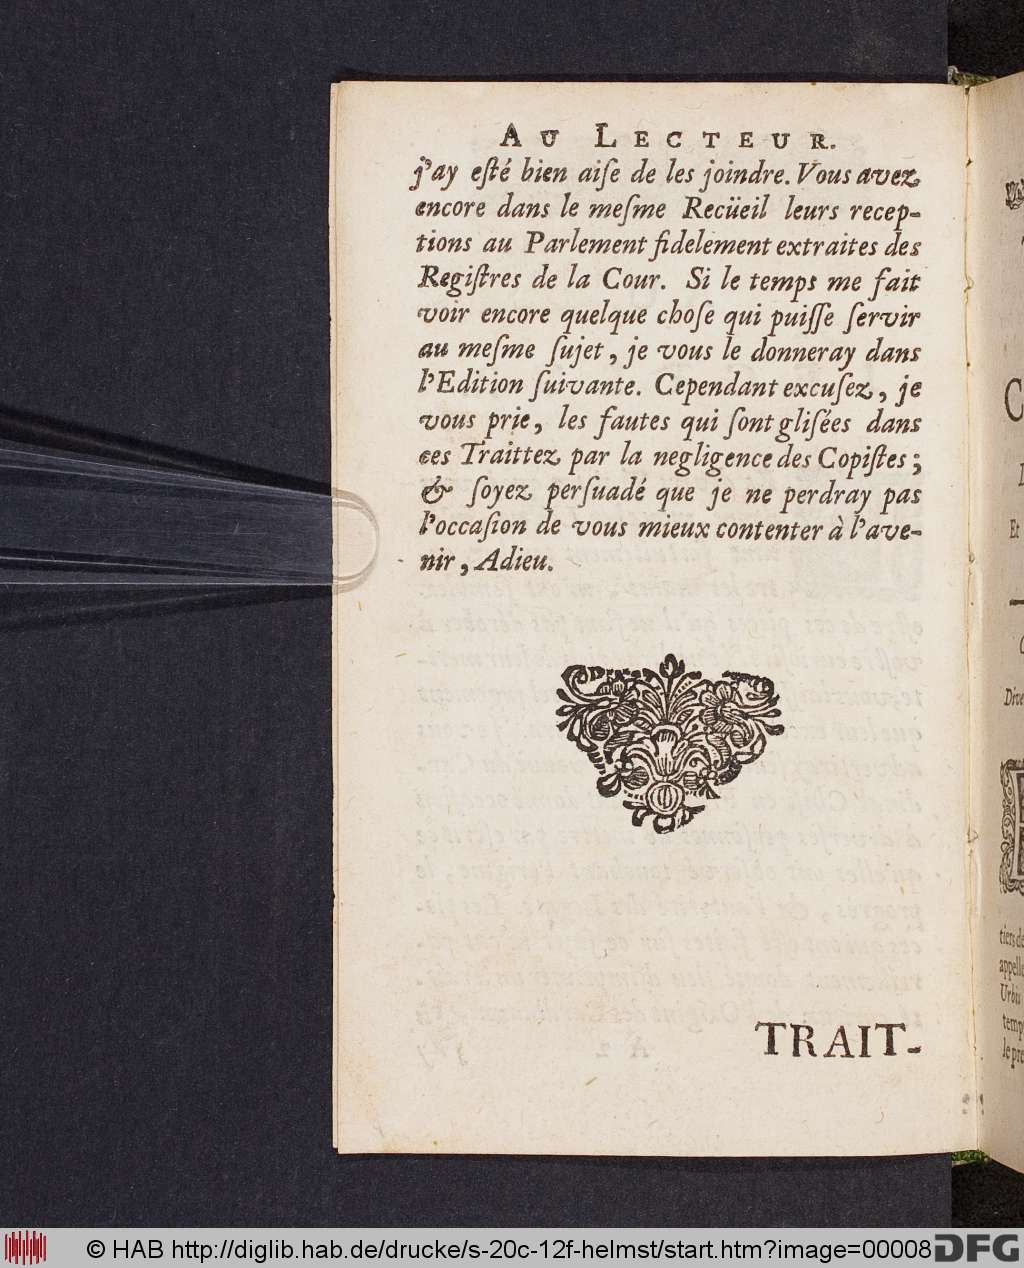 AU LECTEUR.
j'ay esté bien aiſe de les joindre. Vous avez
encore dans le meſme Recüeil leurs recep-
tions au Parlement fidelement extraites des
Regiſtres de la Cour. Si le temps me fait
voir encore quelque choſe qui puiſſe ſervir
au meſme ſujet, je vous le donneray dans
l'Edition ſuivante. Cependant excuſez, je
vous prie, les fautes qui ſont gliſées dans
ces Traittez par la negligence des Copiſtes;
& ſoyez perſuadé que je ne perdray pas
l'occaſion de vous mieux contenter à l'ave-
nir, Adieu.
TRAIT-
Et
Dive
tiers de
appelle
Urbis
temp
le pre
© HAB http://diglib.hab.de/drucke/s-20c-12f-helmst/start.htm?image=00008
DFG